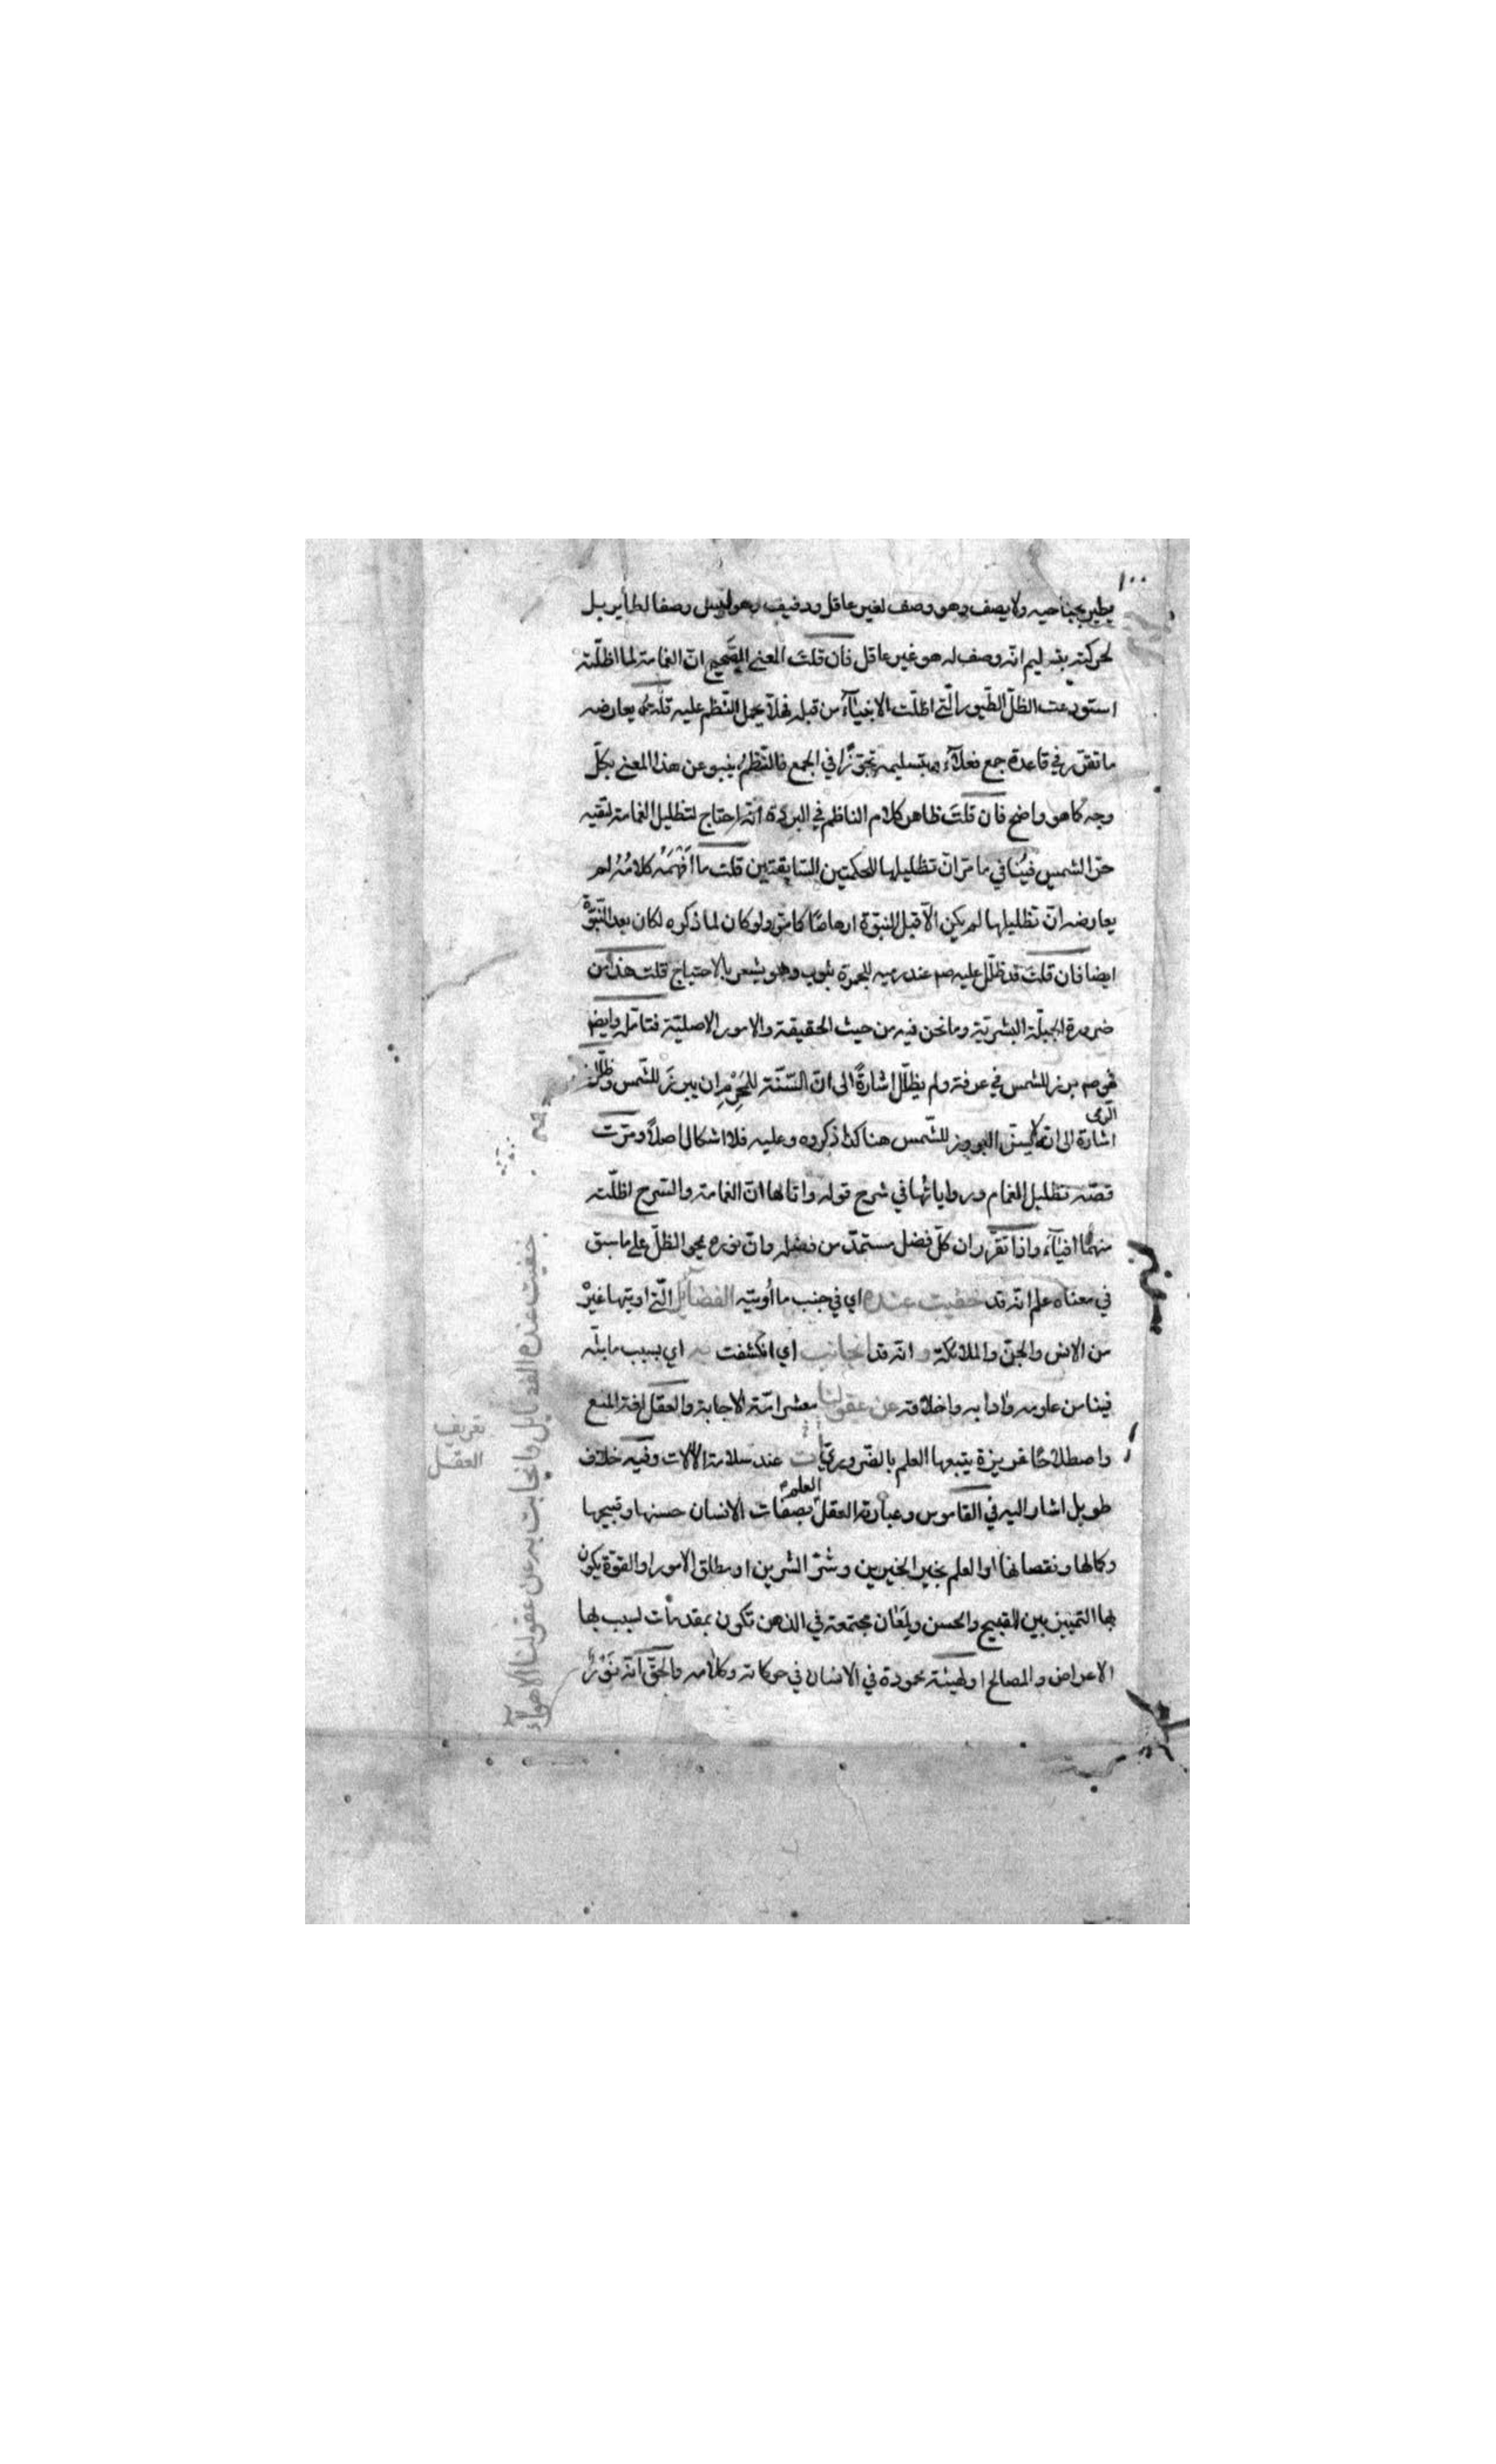 ١٠٠
يطير بجناحيه ولا يصف وهو وصف لغير عاقل ودفيف وهو ليس وصفا لطاير بل
لحركته بتسليم انه وصف له هو غير عاقل فان قلت المعنى الصحيح ان الغمامة لما اظلته
استودعت الظل الطيور التي اظلت الانبياء من قبله فهلا يحمل النظم عليه قلت يعارضه
ما تقرر في قاعدة جمع فعلاء وبتسليمه تجوزا في الجمع فالنظم ينبو عن هذا المعنى بكل
وجه كما هو واضح فان قلت ظاهر كلام الناظم في البردة انه احتاج لتظليل الغمامة لتقيه
حر الشمس فينافي ما مر ان تظليلها للحكمتين السابقتين قلت ما افهمه كلامه
يعارضه ان تظليلها لم يكن الا قبل النبوة ارهاصا كما مر ولو كان لما ذكره لكان بعد النبوة
ايضا فان قلت قد ظلل عليه صم عند رميه للجمرة بثوب وهو يشعر بالاحتياج قلت هذا من
ضرورة الجبلة البشرية وما نحن فيه من حيث الحقيقة والامور الاصلية فتامله وايضا
فهو صم برز للشمس في عرفة ولم يظلل اشارة الى ان السنة للمحرم ان يبرز للشمس وظلل في
الرمي
اشارة الى انه لا يسن البروز للشمس هنا كذا ذكروه وعليه فلا اشكال اصلا ومرت
قصة تظليل الغمام ورواياتها في شرح قوله واتاها ان الغمامة والسرح اظلته
منهما افياء واذا تقرر ان كل فضل مستمد من فضله وان نوره يمحو الظل على ما سبق
في معناه علم انه قد خفيت عنده اي في جنب ما أوتيه الفضائل التي اوتيها غيره
من الانس والجن والملائكة و انه قد انجابت اي انكشفت به اي بسبب ما بثه
فينا من علومه وادابه واخلاقه عن عقولنا معشر امة الاجابة والعقل لغة المنع
واصطلاحا غريزة يتبعها العلم بالضروريات عند سلامة الالات وفيه خلاف
طويل اشار اليه في القاموس وعبارة العقل العلم بصفات الانسان حسنها وقبيحها
وكمالها ونقصانها او العلم بخير الخيرين وشر الشرين او مطلق الامور او القوة يكون
بها التمييز بين القبيح والحسن ولمعان مجتمعة في الذهن تكون بمقدمات لسبب بها
الاعراض والمصالح او لهيئة محمودة في الانسان في حركاته وكلامه والحق انه نور
خفيت عنده الفضايل وانجابت به عن عقولنا الاهواء
تعريف
العقل